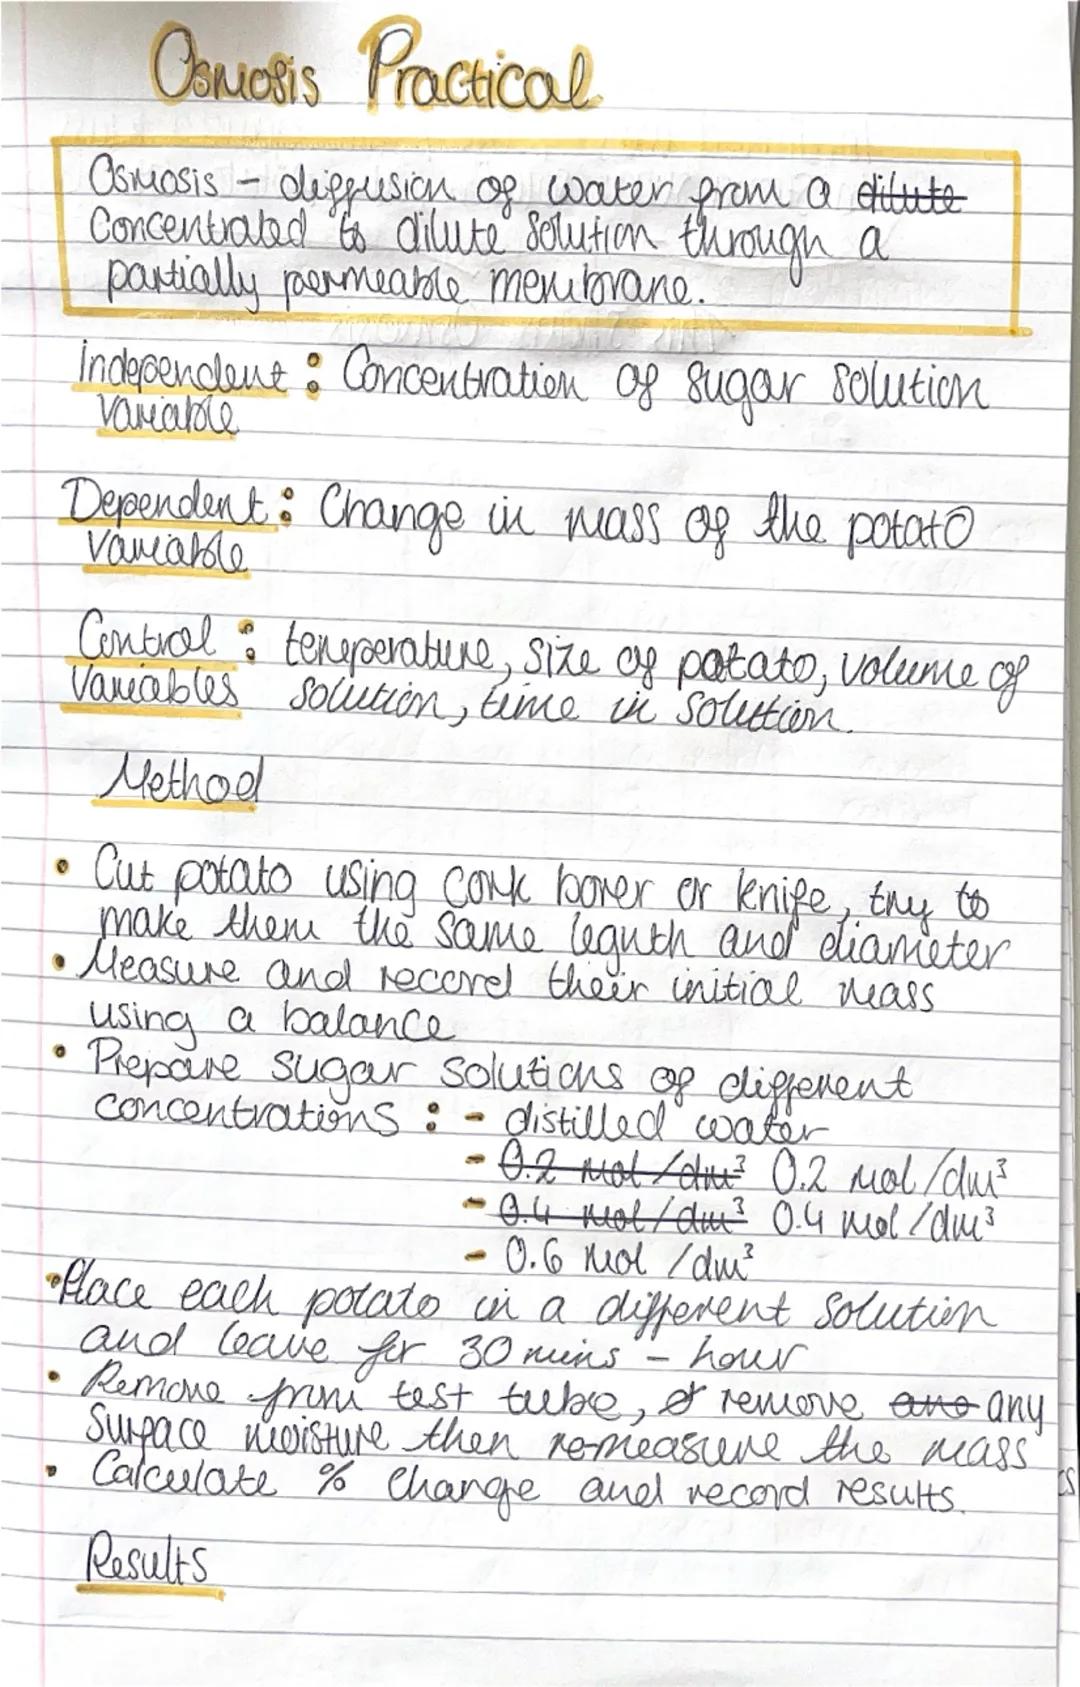 Osmosis Practical
Osmosis - diffusion of water from a dilute
Concentrated to dilute solution through a
partially permeable membrane.
independent : Concentration of sugar solution
variable
Dependent : Change in mass of the potato
variable
Control : temperature, size of potato, volume of
Variables solution, time in solution.
Method
• Cut potato using cork borer or knife, try to
make them the same legnth and diameter
• Measure and record their initial mass
using a balance
• Prepare sugar solutions of different
concentrations : - distilled water
- 0.2 mol/dm³ 0.2 mol/dm³
- 0.4 mol/dm³ 0.4 mol/dm³
- 0.6 mol/dm³
• Place each potato in a different solution
and leave for 30 mins - hour
• Remove from test tube, & remove and any
surface moisture then remeasure the mass
• Calculate % Change and record results.
Results